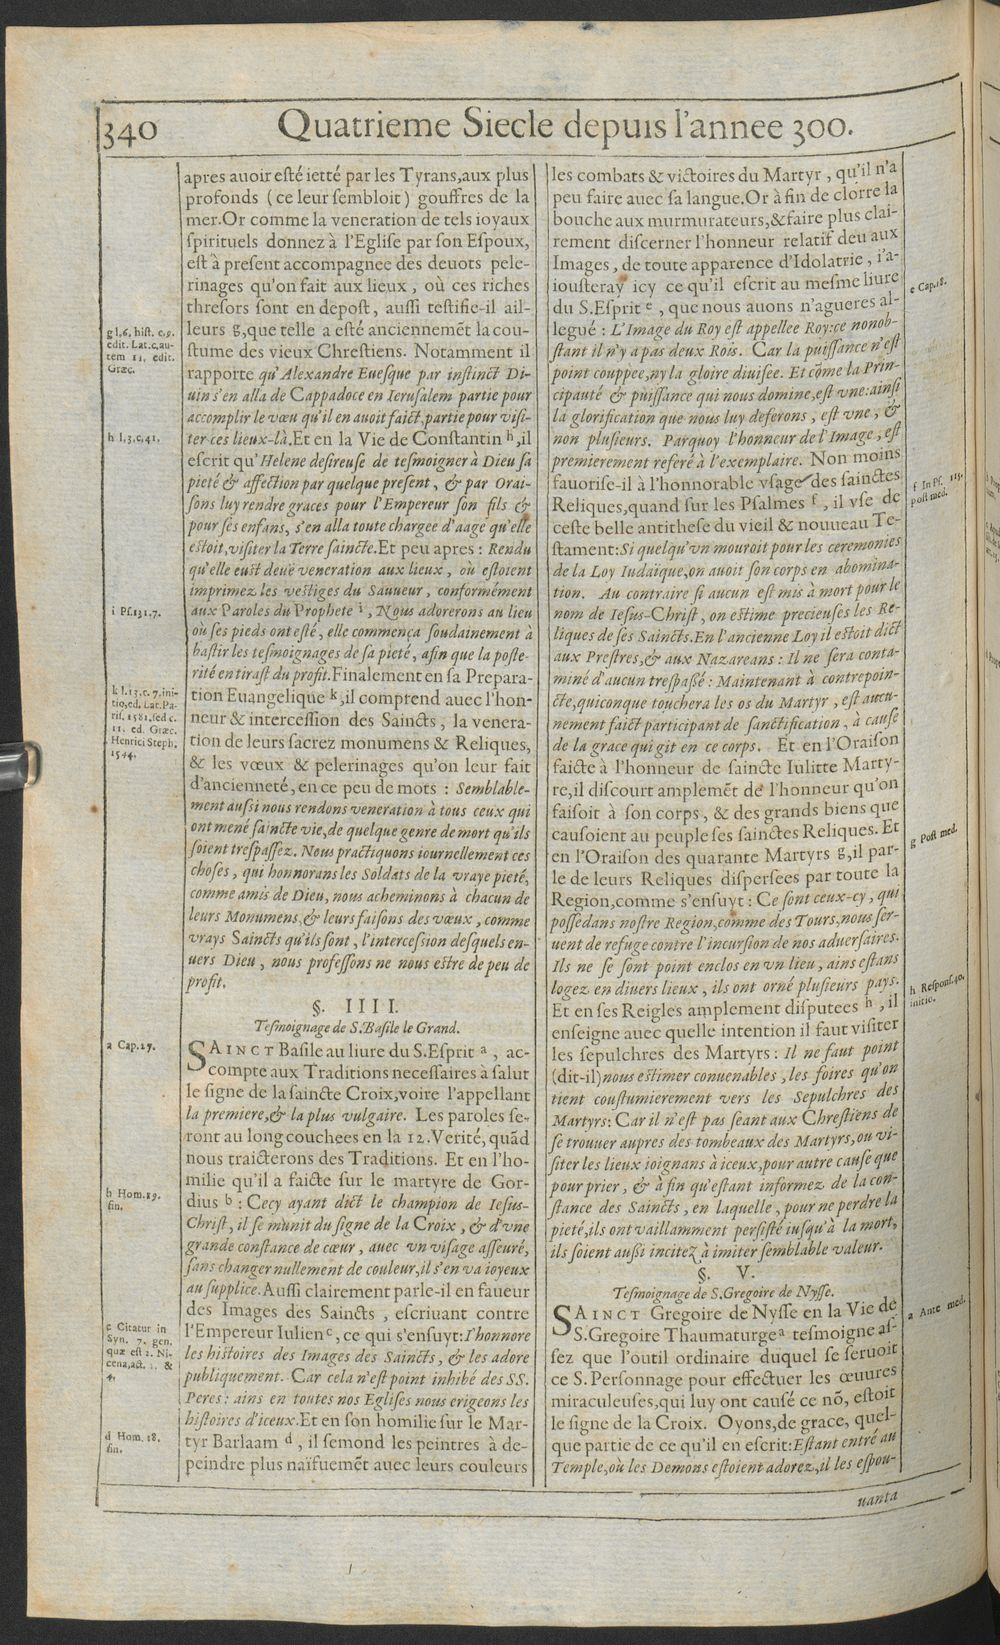 340
Quatrieme Siecle depuis l'annee 300.
apres auoir esté ietté par les Tyrans,aux plus
profonds (ce leur sembloit) gouffres de la
mer.Or comme la veneration de tels ioyaux
spirituels donnez à l'Eglise par son Espoux,
est à present accompagnee des deuots pele-
rinages qu'on fait aux lieux, où ces riches
thresors sont en depost, aussi testifie-il ail-
leurs g,que telle a esté anciennemẽt la cou-
stume des vieux Chrestiens. Notamment il
rapporte qu'Alexandre Euesque par instinct Di-
uin s'en alla de Cappadoce en Ierusalem partie pour
accomplir le vœu qu'il en auoit faict,partie pour visi-
ter ces lieux-là.Et en la Vie de Constantin h,il
escrit qu'Helene desireuse de tesmoigner à Dieu sa
pieté & affection par quelque present, & par Orai-
sons luy rendre graces pour l'Empereur son fils &
pour ses enfans, s'en alla toute chargee d'aage qu'elle
estoit,visiter la Terre saincte.Et peu apres : Rendu
qu'elle eust deuë veneration aux lieux, où estoient
imprimez les vestiges du Sauueur, conformément
aux Paroles du Prophete i, Nous adorerons au lieu
où ses pieds ont esté, elle commença soudainement à
bastir les tesmoignages de sa pieté, afin que la poste-
rité entirast du profit.Finalement en sa Prepara-
tion Euangelique k,il comprend auec l'hon-
neur & intercession des Saincts, la venera-
tion de leurs sacrez monumens & Reliques,
& les vœux & pelerinages qu'on leur fait
d'ancienneté, en ce peu de mots : Semblable-
ment aussi nous rendons veneration à tous ceux qui
ont mené saincte vie,de quelque genre de mort qu'ils
soient trespassez. Nous practiquons iournellement ces
choses, qui honnorans les Soldats de la vraye pieté,
comme amis de Dieu, nous acheminons à chacun de
leurs Monumens,& leurs faisons des vœux, comme
vrays Saincts qu'ils sont, l'intercession desquels en-
uers Dieu, nous professons ne nous estre de peu de
profit.
§. IIII.
Tesmoignage de S.Basile le Grand.
SAINCT Basile au liure du S.Esprit a, ac-
compte aux Traditions necessaires à salut
le signe de la saincte Croix,voire l'appellant
la premiere,& la plus vulgaire. Les paroles se-
ront au long couchees en la 12.Verité, quãd
nous traicterons des Traditions. Et en l'ho-
milie qu'il a faicte sur le martyre de Gor-
dius b : Cecy ayant dict le champion de Iesus-
Christ, il se munit du signe de la Croix, & d'vne
grande constance de cœur, auec vn visage asseuré,
sans changer nullement de couleur,il s'en va ioyeux
au supplice.Aussi clairement parle-il en faueur
des Images des Saincts, escriuant contre
l'Empereur Iulien c, ce qui s'ensuyt:I'honnore
les histoires des Images des Saincts, & les adore
publiquement. Car cela n'est point inhibé des SS.
Peres : ains en toutes nos Eglises nous erigeons les
histoires d'iceux.Et en son homilie sur le Mar-
tyr Barlaam d, il semond les peintres à de-
peindre plus naïfuemẽt auec leurs couleurs
g l.6. hist. c.9.
edit. Lat.c,au-
tem 11, edit.
Græc.
h l.3.c.41.
i Ps.131.7.
k l.13.c. 7.ini-
tio,ed. Lat.Pa-
ris. 1581.sed c.
11. ed. Græc.
Henrici Steph.
1544.
a Cap.27.
b Hom.19.
fin.
c Citatur in
Syn. 7. gen.
quæ est 2. Ni-
cena,act. 2. &
4.
d Hom. 18.
fin.
les combats & victoires du Martyr, qu'il n'a
peu faire auec sa langue.Or à fin de clorre la
bouche aux murmurateurs,& faire plus clai-
rement discerner l'honneur relatif deu aux
Images, de toute apparence d'Idolatrie, i'a-
iousteray icy ce qu'il escrit au mesme liure
du S.Esprit e, que nous auons n'agueres al-
legué : L'Image du Roy est appellee Roy:ce nonob-
stant il n'y a pas deux Rois. Car la puissance n'est
point couppee,ny la gloire diuisee. Et cõme la Prin-
cipauté & puissance qui nous domine,est vne:ainsi
la glorification que nous luy deferons, est vne, &
non plusieurs. Parquoy l'honneur de l'Image, est
premierement referé à l'exemplaire. Non moins
fauorise-il à l'honnorable vsage des sainctes
Reliques,quand sur les Psalmes f, il vse de
ceste belle antithese du vieil & nouueau Te-
stament:Si quelqu'vn mouroit pour les ceremonies
de la Loy Iudaïque,on auoit son corps en abomina-
tion. Au contraire si aucun est mis à mort pour le
nom de Iesus-Christ, on estime precieuses les Re-
liques de ses Saincts.En l'ancienne Loy il estoit dict
aux Prestres,& aux Nazareans : Il ne sera conta-
miné d'aucun trespassé : Maintenant à contrepoin-
cte,quiconque touchera les os du Martyr, est aucu-
nement faict participant de sanctification, à cause
de la grace qui git en ce corps. Et en l'Oraison
faicte à l'honneur de saincte Iulitte Marty-
re,il discourt amplemẽt de l'honneur qu'on
faisoit à son corps, & des grands biens que
causoient au peuple ses sainctes Reliques. Et
en l'Oraison des quarante Martyrs g,il par-
le de leurs Reliques dispersees par toute la
Region,comme s'ensuyt : Ce sont ceux-cy, qui
possedans nostre Region,comme des Tours,nous ser-
uent de refuge contre l'incursion de nos aduersaires.
Ils ne se sont point enclos en vn lieu, ains estans
logez en diuers lieux, ils ont orné plusieurs pays.
Et en ses Reigles amplement disputees h, il
enseigne auec quelle intention il faut visiter
les sepulchres des Martyrs : Il ne faut point
(dit-il) nous estimer conuenables, les foires qu'on
tient coustumierement vers les Sepulchres des
Martyrs: Car il n'est pas seant aux Chrestiens de
se trouuer aupres des tombeaux des Martyrs, ou vi-
siter les lieux ioignans à iceux,pour autre cause que
pour prier, & à fin qu'estant informez de la con-
stance des Saincts, en laquelle, pour ne perdre la
pieté,ils ont vaillamment persisté iusqu'à la mort,
ils soient aussi incitez à imiter semblable valeur.
§. V.
Tesmoignage de S.Gregoire de Nysse.
SAINCT Gregoire de Nysse en la Vie de
S.Gregoire Thaumaturge a tesmoigne as-
sez que l'outil ordinaire duquel se seruoit
ce S. Personnage pour effectuer les œuures
miraculeuses,qui luy ont causé ce nõ, estoit
le signe de la Croix. Oyons,de grace, quel-
que partie de ce qu'il en escrit:Estant entré au
Temple,où les Demons estoient adorez,il les espou-
uanta
e Cap.18.
f In Ps. 115.
post med.
g Post med.
h Respons.40.
initio.
a Ante med.